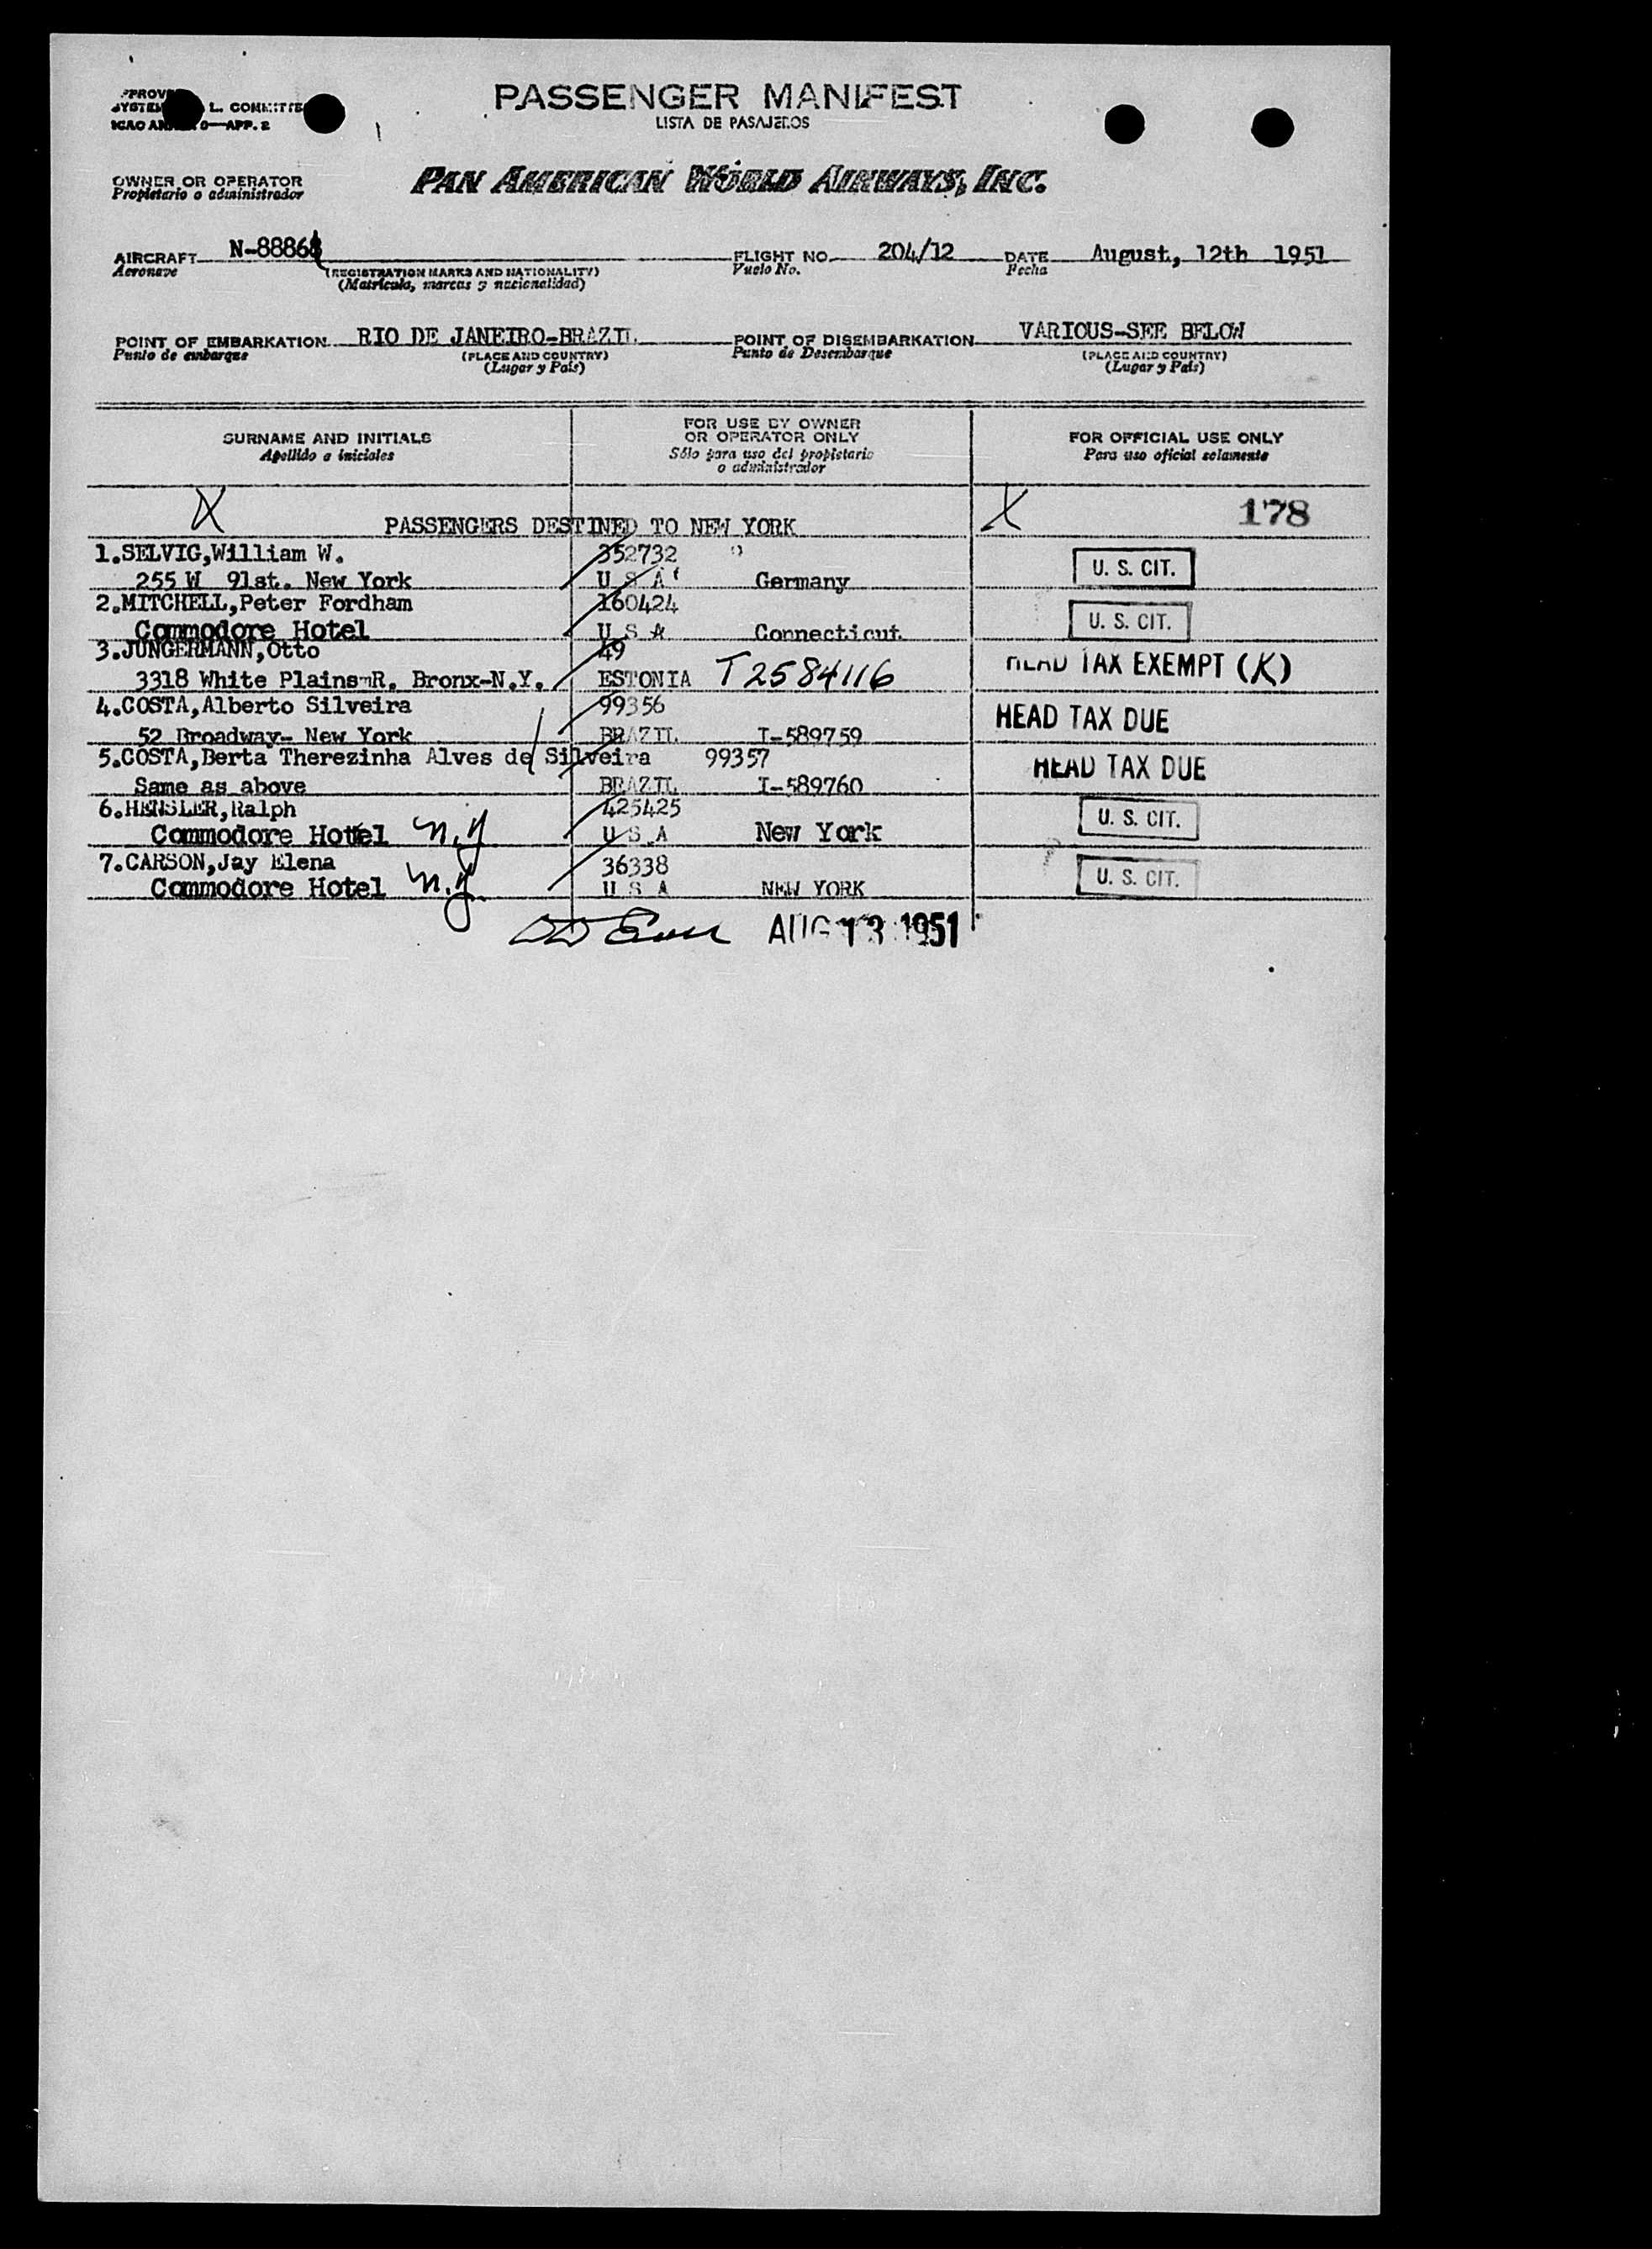 PASSENGER MANIFEST
L. COMMITTEE
LISTA DE PASAJEROS
APP. 2
OWNER OR OPERATOR PAN AMERICAN WORLD AIRWAYS, INC.
Propietario o administrador
AIRCRAFT N-8886 FLIGHT NO. 204/12 DATE August, 12th 1951
Aeronave (REGISTRATION MARKS AND NATIONALITY) Vuelo No. Fecha
(Matrícula, marcas y nacionalidad)
POINT OF EMBARKATION RIO DE JANEIRO-BRAZIL POINT OF DISEMBARKATION VARIOUS-SEE BELOW
Punto de embarque (PLACE AND COUNTRY) Punto de Desembarque (PLACE AND COUNTRY)
(Lugar y País) (Lugar y País)
SURNAME AND INITIALS FOR USE BY OWNER OR OPERATOR ONLY FOR OFFICIAL USE ONLY
Apellido e iniciales Sólo para uso del propietario o administrador Para uso oficial solamente
X X 178
PASSENGERS DESTINED TO NEW YORK
1.SELVIG,William W. 352732
255 W 91st. New York U S A Germany U. S. CIT.
2.MITCHELL,Peter Fordham 160424
Commodore Hotel U S A Connecticut U. S. CIT.
3.JUNGERMANN,Otto 49
3318 White Plains R. Bronx-N.Y. ESTONIA T2584116 HEAD TAX EXEMPT (K)
4.COSTA,Alberto Silveira 99356
52 Broadway- New York BRAZIL I-589759 HEAD TAX DUE
5.COSTA,Berta Therezinha Alves de Silveira 99357
Same as above BRAZIL I-589760 HEAD TAX DUE
6.HENSLER,Ralph 425425
Commodore Hotel N.Y U S A New York U. S. CIT.
7.CARSON,Jay Elena 36338
Commodore Hotel N.Y. U S A NEW YORK U. S. CIT.
AUG 13 1951